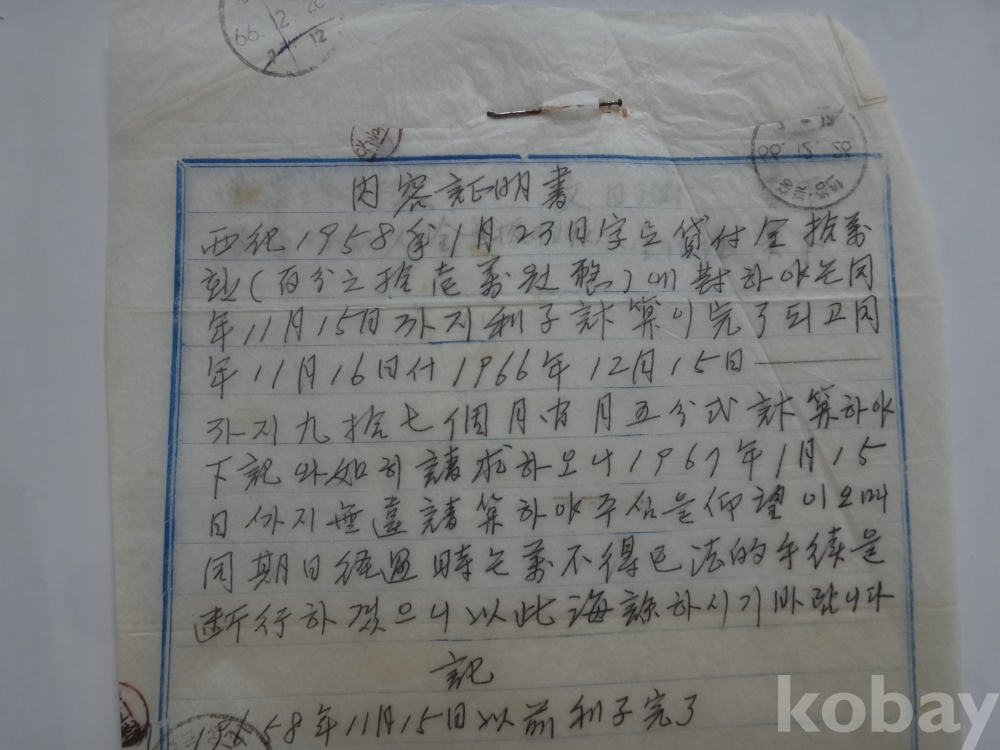 66.12.20
12
66.12.20
內容証明書
西紀1958年1月23日字로貸付金拾萬
환(百分之拾壱萬원整)에對하야는同
年11月15日까지利子計算이完了되고同
年11月16日付1966年12月15日
까지九拾七個月 月五分式計算하야
下記와如히請求하오니1967年1月15
日까지無違請算하야주심을仰望이오며
同期日経過時는萬不得已法的手续을
断行하겠으니以此海諒하시기바랍니다
記
1958年11月15日以前利子完了
kobay